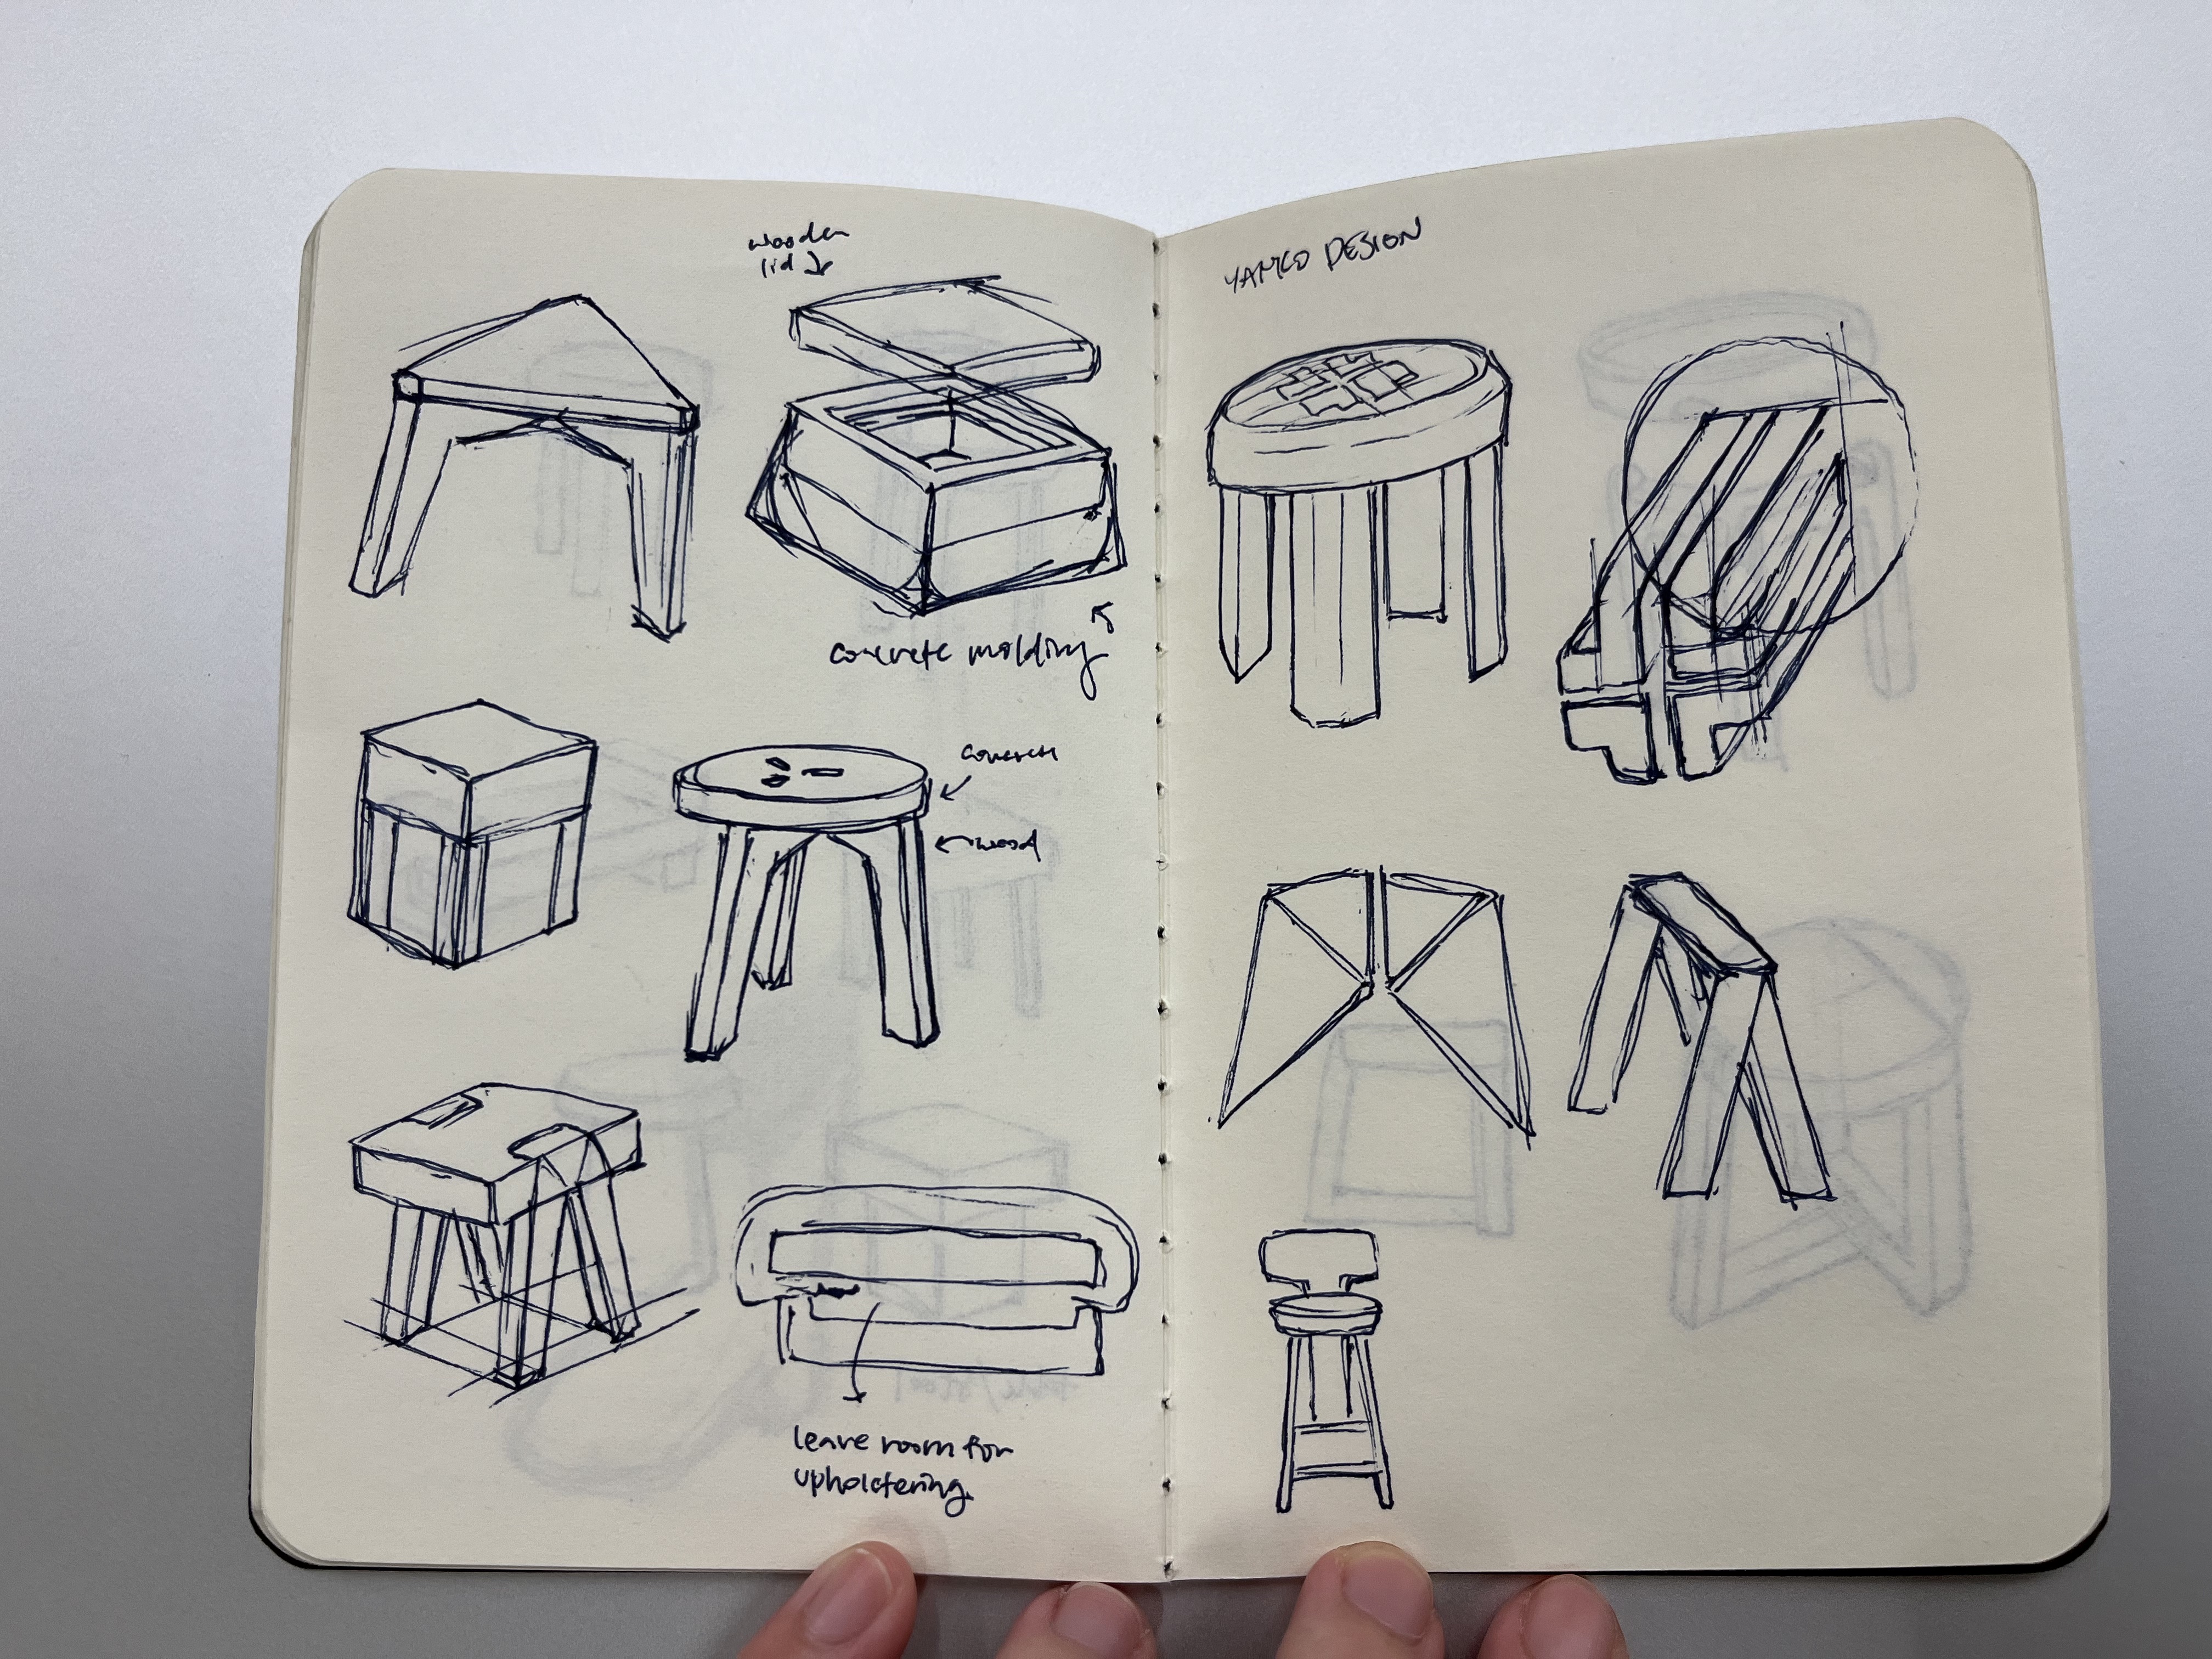 wooden
lid
concrete molding
concrete
wood
leave room for
upholstering
DESIGN